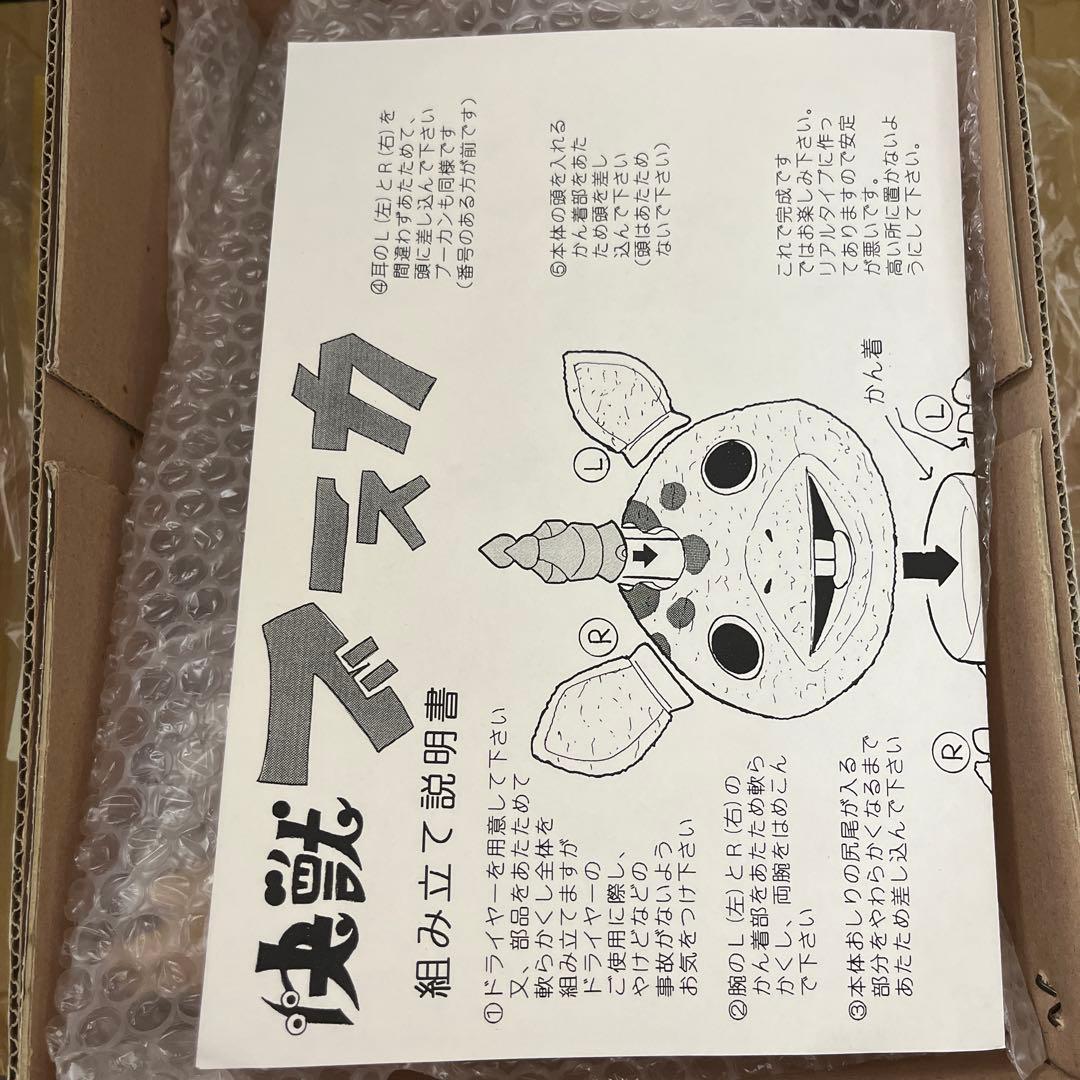 快獣
ブースカ
組み立て説明書
①ドライヤーを用意して下さい
又、部品をあたためて
軟らかくし全体を
組み立てますが
ドライヤーの
ご使用に際し、
やけどなどの
事故がないよう
お気をつけ下さい
②腕のL(左)とR(右)の
かん着部をあたため軟ら
かくし、両腕をはめこん
で下さい
③本体おしりの尻尾が入る
部分をやわらかくなるまで
あたため差し込んで下さい
④耳のL(左)とR(右)を
間違わずあたためて、
頭に差し込んで下さい
ブーカンも同様です
(番号のある方が前です)
⑤本体の頭を入れる
かん着部をあた
ため頭を差し
込んで下さい
(頭はあたため
ないで下さい)
これで完成です
ではお楽しみ下さい。
リアルタイプに作っ
てありますので安定
が悪いです。
高い所に置かないよ
うにして下さい。
R
L
かん着
R
L